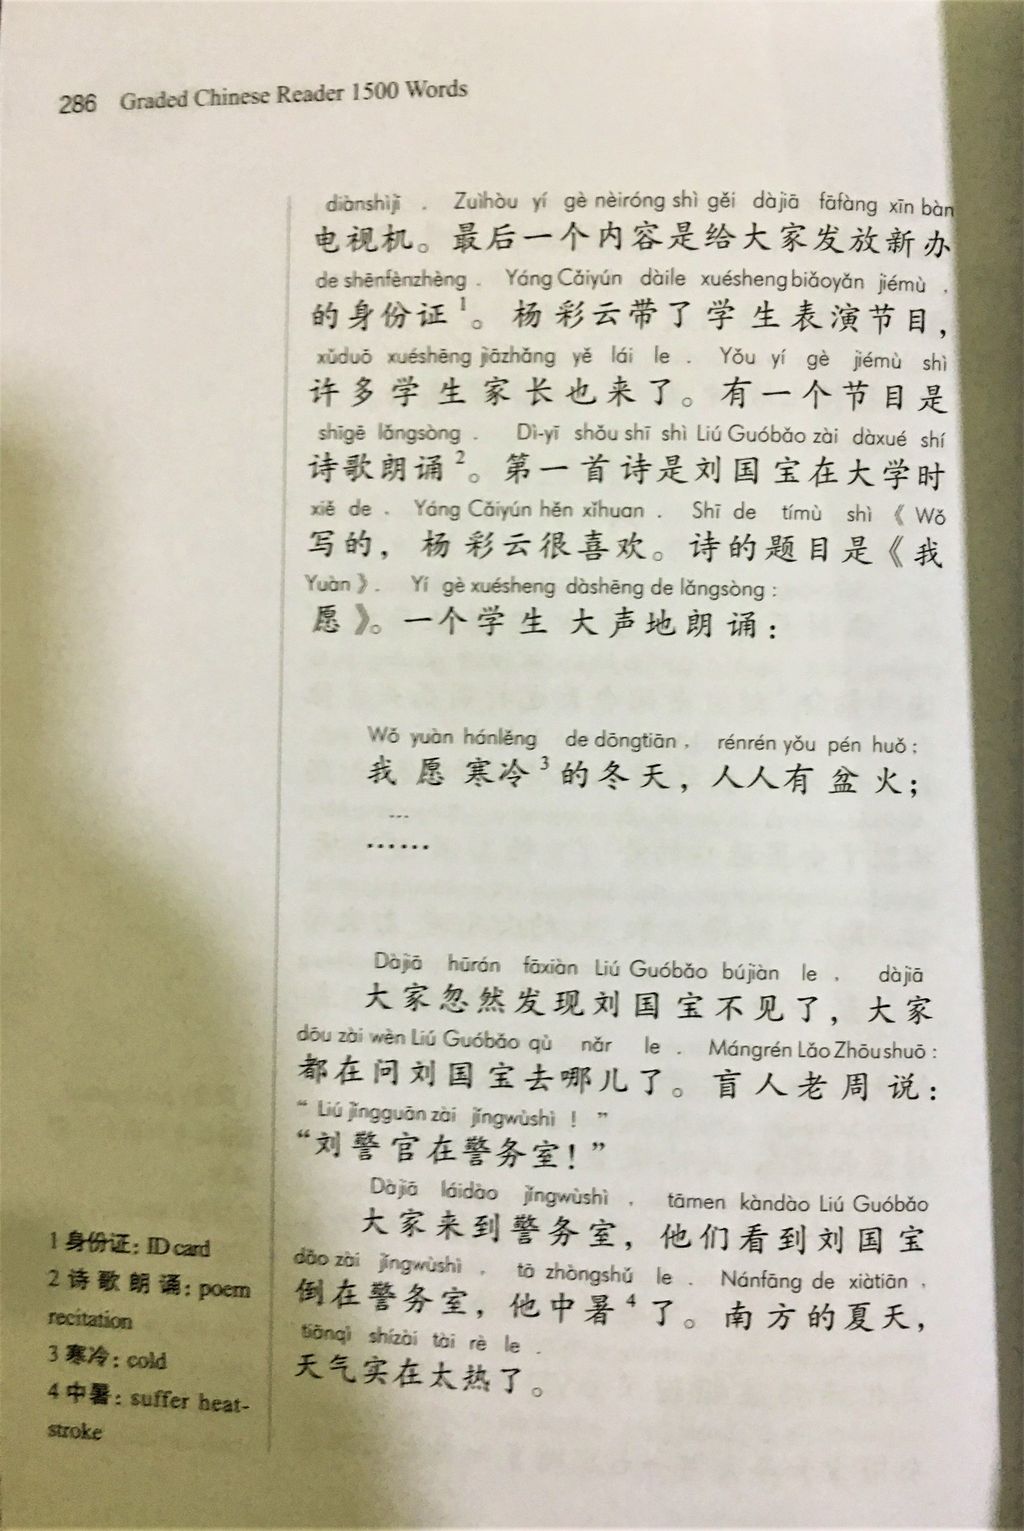 286 Graded Chinese Reader 1500 Words
diànshìjī . Zuìhòu yí gè nèiróng shì gěi dàjiā fāfàng xīn bàn
电视机。最后一个内容是给大家发放新办
de shēnfènzhèng . Yáng Cǎiyún dàile xuésheng biǎoyǎn jiémù ,
的身份证1。杨彩云带了学生表演节目，
xǔduō xuéshēng jiāzhǎng yě lái le . Yǒu yí gè jiémù shì
许多学生家长也来了。有一个节目是
shīgē lǎngsòng . Dì-yī shǒu shī shì Liú Guóbǎo zài dàxué shí
诗歌朗诵2。第一首诗是刘国宝在大学时
xiě de , Yáng Cǎiyún hěn xǐhuan . Shī de tímù shì 《 Wǒ
写的，杨彩云很喜欢。诗的题目是《我
Yuàn 》. Yí gè xuésheng dàshēng de lǎngsòng :
愿》。一个学生大声地朗诵：
Wǒ yuàn hánlěng de dōngtiān , rénrén yǒu pén huǒ ;
我愿寒冷3的冬天，人人有盆火；
...
……
Dàjiā hūrán fāxiàn Liú Guóbǎo bújiàn le , dàjiā
大家忽然发现刘国宝不见了，大家
dōu zài wèn Liú Guóbǎo qù nǎr le . Mángrén Lǎo Zhōu shuō :
都在问刘国宝去哪儿了。盲人老周说：
“ Liú jǐngguān zài jǐngwùshì ! ”
“刘警官在警务室！”
Dàjiā láidào jǐngwùshì , tāmen kàndào Liú Guóbǎo
大家来到警务室，他们看到刘国宝
dǎo zài jǐngwùshì , tā zhòngshǔ le . Nánfāng de xiàtiān ,
倒在警务室，他中暑4了。南方的夏天，
tiānqì shízài tài rè le .
天气实在太热了。
1 身份证: ID card
2 诗歌朗诵: poem
recitation
3 寒冷: cold
4 中暑: suffer heat-
stroke